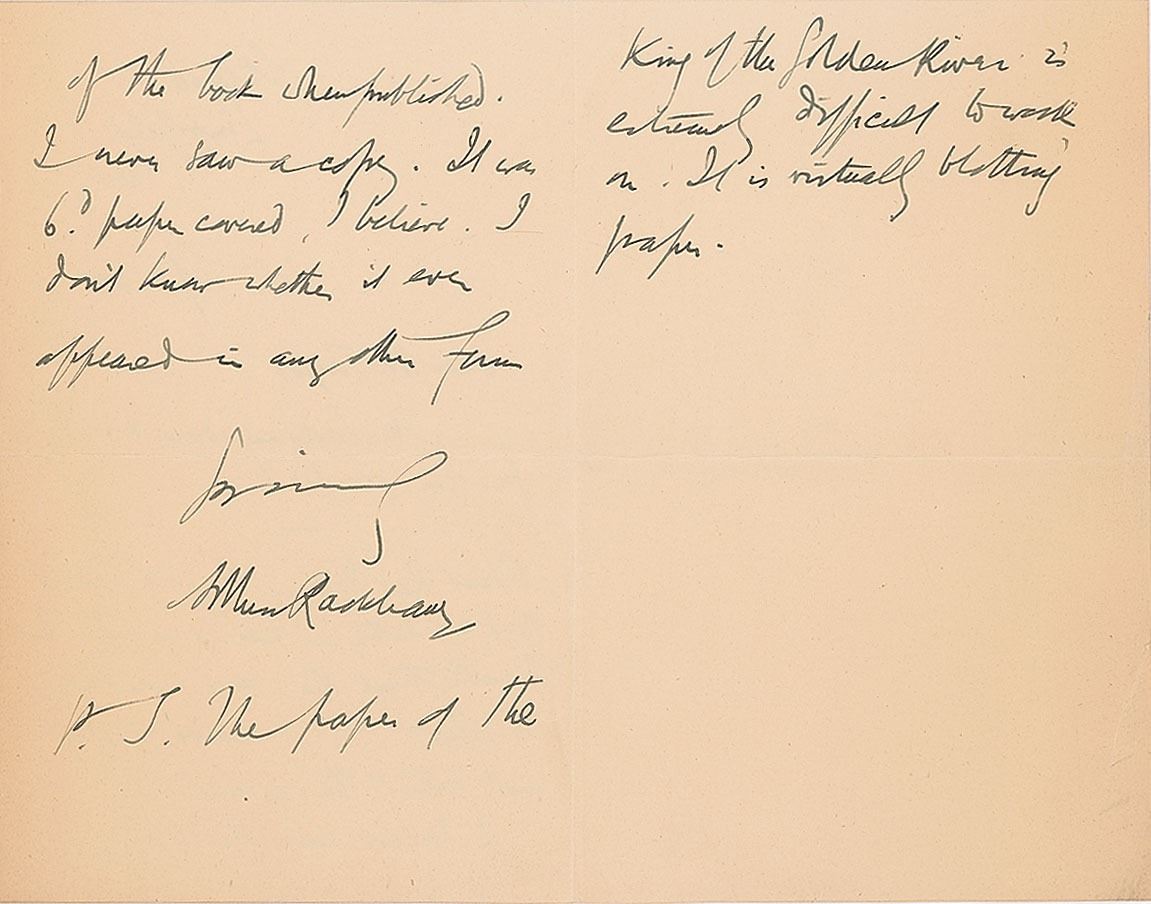 of the book when published.
I never saw a copy. It was
6.d paper covered, I believe. I
don't know whether it ever
appeared in any other form
Yrs sincerely
Arthur Rackham
P. S. The paper of the
King of the Golden River is
extremely difficult to work
on. It is virtually blotting
paper.